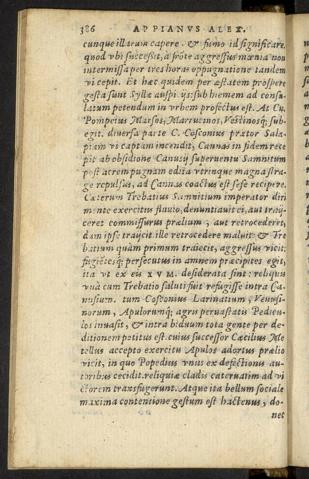 386 APPIANVS ALEX.
cunque illarum capere. & fumo id significare.
quod vbi successit, à fröte aggressus mœnia non
intermissa per tres horas oppugnatione tandem
vi cepit. Et hæc quidem per æstatem prospere
gesta sunt Syllæ auspicijs: sub hiemem ad consu-
latum petendum in vrbem profectus est. At Cn.
Pompeius Marsos, Marrucinos, Vestinosq; sub-
egit. diuersa parte C. Cosconius prætor Sala-
piam vi captam incendit, Cannas in fidem rece
pit ab obsidione Canusij superuentu Samnitum
post atrem pugnam edita vtrinque magna strа-
ge repulsus, ad Cannas coactus est sese recipere.
Cæterum Trebatius Samnitium imperator diri
mente exercitus fluuio, denuntiauit ei, aut traij-
ceret commissurus prælium, aut retrocederet,
dum ipse traijcit. ille retrocedere maluit. & Tre
batium quàm primum traiecit, aggressus vicit.
fugiétesq; persecutus in amnem præcipites egit,
ita vt ex eis XVM. desiderata sint: reliquos
vnà cum Trebatio saluti fuit refugisse intra Ca-
nusium. tum Cosconius Larinatium, Venusi-
norum, Apulorumq; agris peruastatis Pedicu-
los inuasit, & intra biduum tota gente per de-
ditionem potitus est. cuius successor Cæcilius Me
tellus accepto exercitu Apulos adortus prælio
vicit, in quo Popedius vnus ex defectionis au-
toribus cecidit. reliquiæ cladis cateruatim ad vi
ctorem transfugerunt. Atque ita bellum sociale
maxima contentione gestum est hactenus, do-
nec